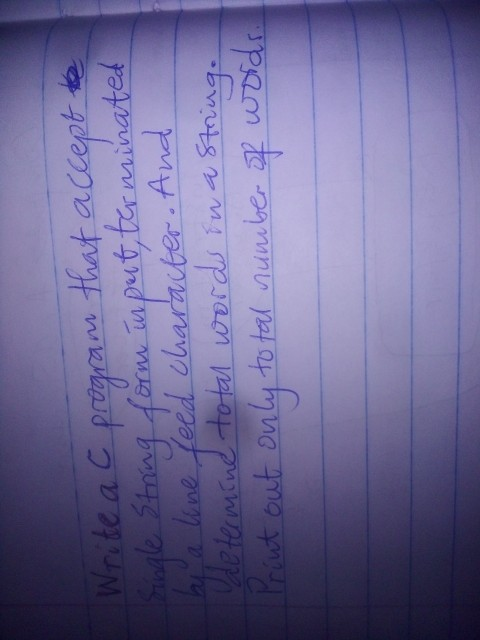 Write a C program that accept
single string form input, terminated
by a line feed character. And
determine total words in a string.
Print out only total number of words.